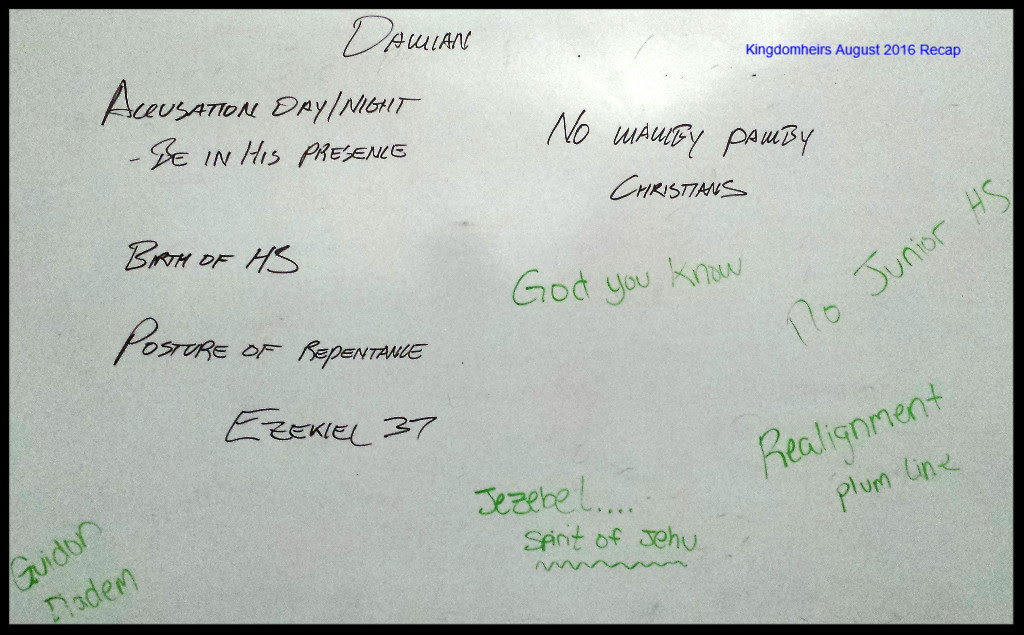 DAMIAN
Kingdomheirs August 2016 Recap
ACCUSATION DAY/NIGHT
- BE IN HIS PRESENCE
NO MAMBY PAMBY
CHRISTIANS
BIRTH OF HS
God you know
No Junior HS
POSTURE OF REPENTANCE
EZEKIEL 37
Realignment
plum line
Jezebel....
Spirit of Jehu
Guidon
Diadem